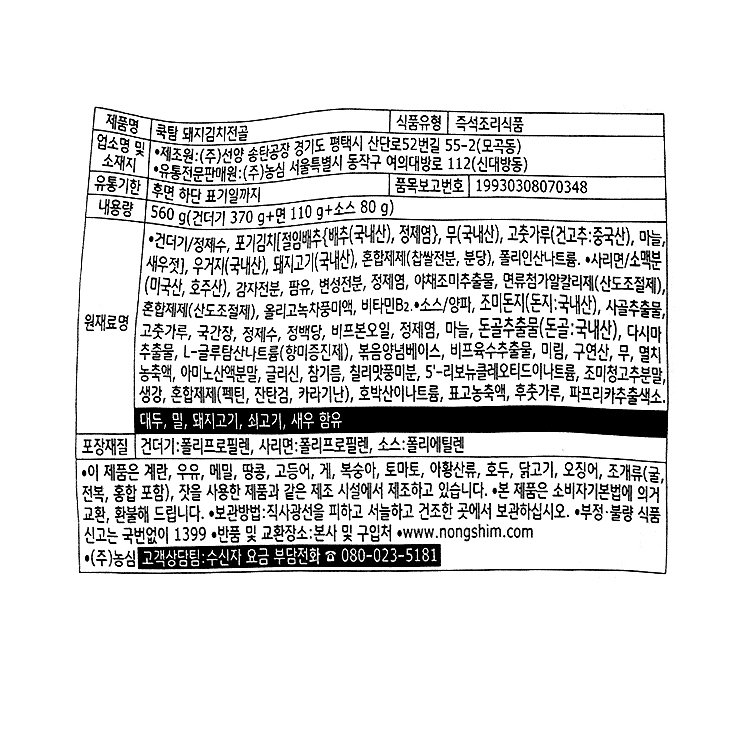 제품명 쿡탐 돼지김치전골 식품유형 즉석조리식품
업소명 및 소재지 •제조원:(주)선양 송탄공장 경기도 평택시 산단로52번길 55-2(모곡동)
•유통전문판매원:(주)농심 서울특별시 동작구 여의대방로 112(신대방동)
유통기한 후면 하단 표기일까지 품목보고번호 19930308070348
내용량 560 g(건더기 370 g+면 110 g+소스 80 g)
원재료명 •건더기/정제수, 포기김치[절임배추{배추(국내산), 정제염}, 무(국내산), 고춧가루(건고추:중국산), 마늘,
새우젓], 우거지(국내산), 돼지고기(국내산), 혼합제제(찹쌀전분, 분당), 폴리인산나트륨. •사리면/소맥분
(미국산, 호주산), 감자전분, 팜유, 변성전분, 정제염, 야채조미추출물, 면류첨가알칼리제(산도조절제),
혼합제제(산도조절제), 올리고녹차풍미액, 비타민B2.•소스/양파, 조미돈지(돈지:국내산), 사골추출물,
고춧가루, 국간장, 정제수, 정백당, 비프본오일, 정제염, 마늘, 돈골추출물(돈골:국내산), 다시마
추출물, L-글루탐산나트륨(향미증진제), 볶음양념베이스, 비프육수추출물, 미림, 구연산, 무, 멸치
농축액, 아미노산액분말, 글리신, 참기름, 칠리맛풍미분, 5'-리보뉴클레오티드이나트륨, 조미청고추분말,
생강, 혼합제제(펙틴, 잔탄검, 카라기난), 호박산이나트륨, 표고농축액, 후춧가루, 파프리카추출색소.
대두, 밀, 돼지고기, 쇠고기, 새우 함유
포장재질 건더기:폴리프로필렌, 사리면:폴리프로필렌, 소스:폴리에틸렌
•이 제품은 계란, 우유, 메밀, 땅콩, 고등어, 게, 복숭아, 토마토, 아황산류, 호두, 닭고기, 오징어, 조개류(굴,
전복, 홍합 포함), 잣을 사용한 제품과 같은 제조 시설에서 제조하고 있습니다. •본 제품은 소비자기본법에 의거
교환, 환불해 드립니다. •보관방법:직사광선을 피하고 서늘하고 건조한 곳에서 보관하십시오. •부정·불량 식품
신고는 국번없이 1399 •반품 및 교환장소:본사 및 구입처 •www.nongshim.com
•(주)농심 고객상담팀:수신자 요금 부담전화 ☎ 080-023-5181